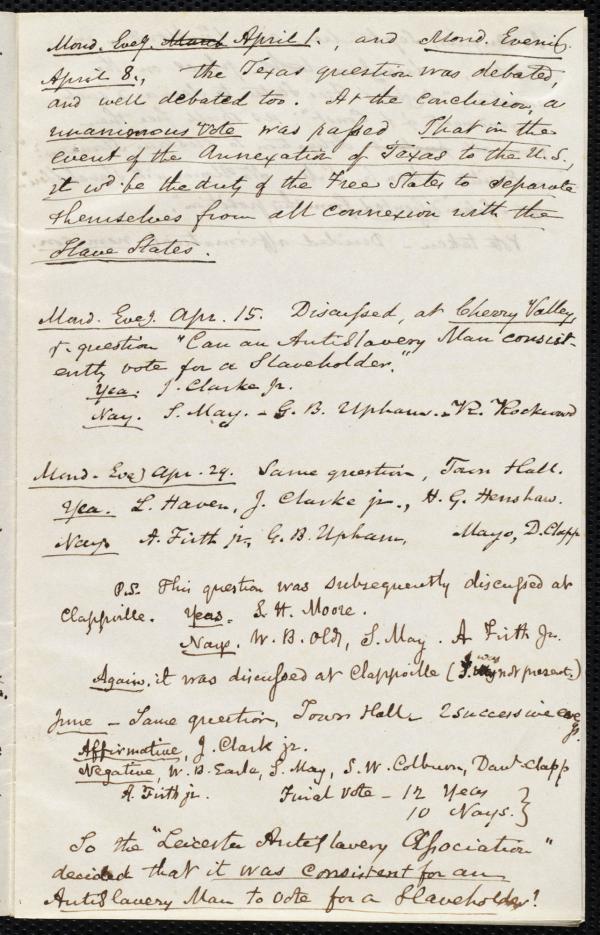 Mond. Eveg. March April 1., and Mond. Evening.
April 8., the Texas question was debated,
and well debated too. At the conclusion, a
unanimous vote was passed That in the
event of the Annexation of Texas to the U.S.,
it wd. be the duty of the Free States to separate
themselves from all connexion with the
Slave States.
Mond. Eveg. Apr. 15. Discussed, at Cherry Valley
question "Can an AntiSlavery Man consist-
ently vote for a Slaveholder."
Yea. J. Clarke Jr.
Nay. S. May. - G. B. Upham. - K. Rockwood
Mond. Eveg Apr. 29. Same question, Town Hall.
Yea. L. Haven, J. Clarke jr., H. G. Henshaw.
Nays A. Firth jr, G. B. Upham, Mayo, D. Clapp
P.S. This question was subsequently discussed at
Clappville. Yeas. S. H. Moore.
Nays. W. B. Old, S. May. A Firth Jr.
Again, it was discussed at Clappville (I was not present.)
June - Same question, Town Hall - 2 successive evegs.
Affirmative, J. Clark jr.
Negative, W. B. Earle, S. May, S. W. Colburn, Danl. Clapp
A. Firth jr. Final vote - 12 Yeas
10 Nays.
So the "Leicester AntiSlavery Association"
decided that it was consistent for an
AntiSlavery Man to vote for a Slaveholder!